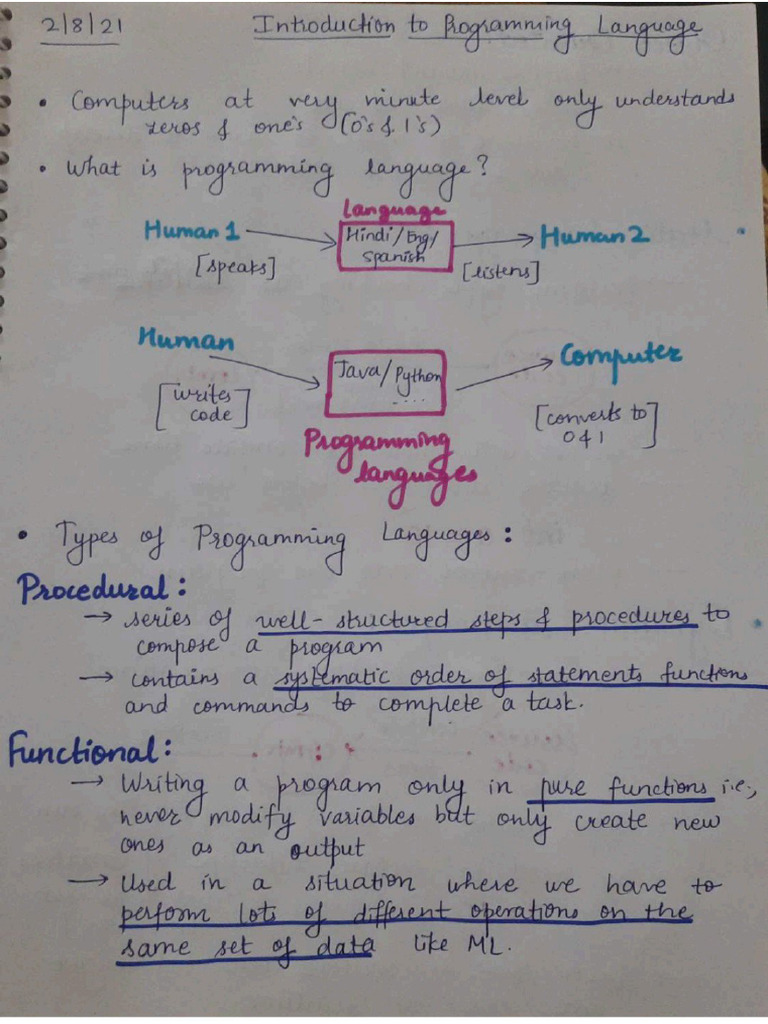 2/8/21 Introduction to Programming Language
• Computers at very minute level only understands
zeros & one's (0's & 1's)
• What is programming language?
Language
Human 1 Hindi/Eng/ Human 2
Spanish
[speaks] [listens]
Human Java/Python Computer
....
[writes
code]
[converts to
0 & 1]
Programming
languages
• Types of Programming Languages:
Procedural:
→ series of well-structured steps & procedures to
compose a program
→ contains a systematic order of statements functions
and commands to complete a task.
Functional:
→ Writing a program only in pure functions i.e.,
never modify variables but only create new
ones as an output
→ Used in a situation where we have to
perform lots of different operations on the
same set of data like ML.